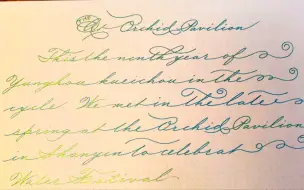 Orchid Pavilion
This the ninth year of
Yunghou kueichou in the
cycle. We met in the late
spring at the Orchid Pavilion
in Shanyin to celebrat
Water Festival